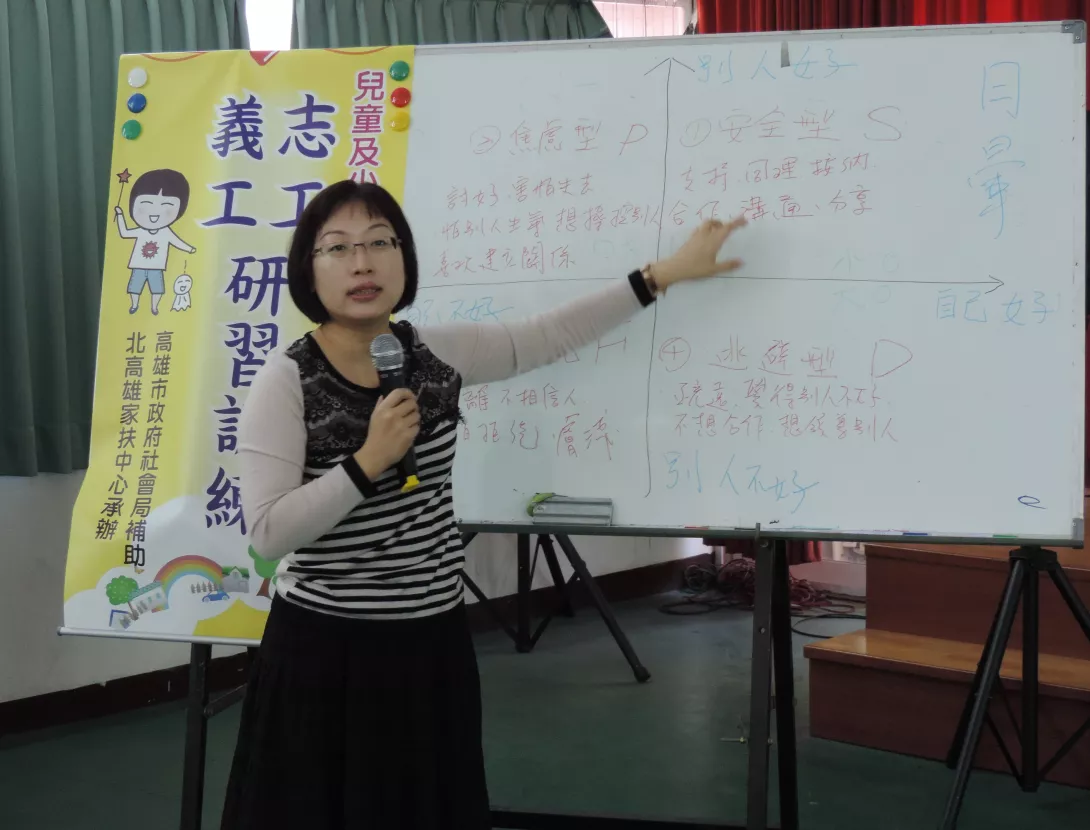 兒童及少
志工
義工研習訓練
高雄市政府社會局補助
北高雄家扶中心承辦
別人好
②焦慮型 P
討好.害怕失去
怕別人生氣 想操控別人
喜欢建立關係
①安全型 S
支持.同理.接納.
合作.溝通.分享
小
大
自己好
不好
H
離 不相信人
拒絕
④逃避型 D
疏遠.覺得別人不好.
不想合作.想改善別人
別人不好